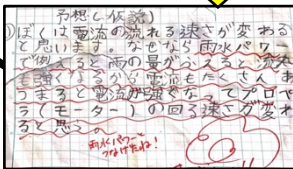 予想(仮説)
①ぼくは電流の流れる速さが変わる
と思います。なぜなら雨水パワー
で例えると雨の量がふえると流れ
も強くなるから電流もたくさんあ
つまると電流が強くなってプロペ
ラ(モーター)の回る速さが変わ
ると思う。
雨水パワーと
つなげたね!